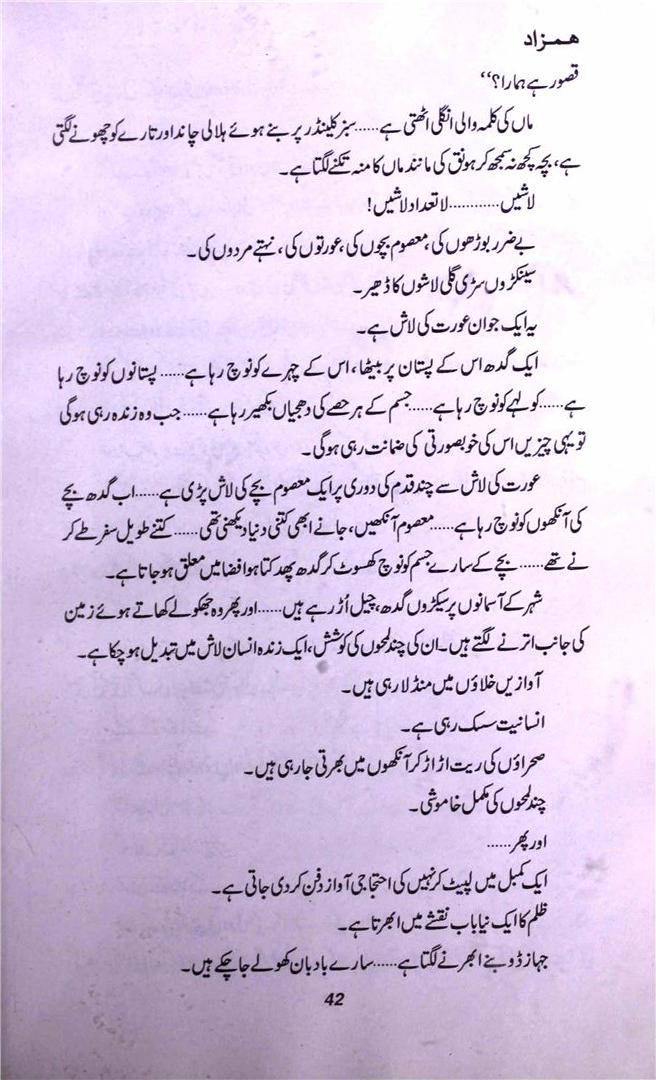 ہمزاد
قصور ہے ہمارا؟‘‘
ماں کی کلمہ والی انگلی اٹھتی ہے......سبز کلینڈر پر بنے ہوئے ہلالی چاند اور تارے کو چھونے لگتی
ہے، بچہ کچھ نہ سمجھ کر ہونق کی مانند ماں کا منہ تکنے لگتا ہے۔
لاشیں............لاتعداد لاشیں!
بے ضرر بوڑھوں کی، معصوم بچوں کی، عورتوں کی، نہتے مردوں کی۔
سینکڑوں سڑی گلی لاشوں کا ڈھیر۔
یہ ایک جوان عورت کی لاش ہے۔
ایک گدھ اس کے پستان پر بیٹھا، اس کے چہرے کو نوچ رہا ہے...... پستانوں کو نوچ رہا
ہے......کولہے کو نوچ رہا ہے......جسم کے ہر حصے کی دھجیاں بکھیر رہا ہے...... جب وہ زندہ رہی ہوگی
تو یہی چیزیں اس کی خوبصورتی کی ضمانت رہی ہوگی۔
عورت کی لاش سے چند قدم کی دوری پر ایک معصوم بچے کی لاش پڑی ہے......اب گدھ بچے
کی آنکھوں کو نوچ رہا ہے...... معصوم آنکھیں، جانے ابھی کتنی دنیا دیکھنی تھی...... کتنے طویل سفر طے کر
نے تھے...... بچے کے سارے جسم کو نوچ کھسوٹ کر گدھ پھدکتا ہوا فضا میں معلق ہو جاتا ہے۔
شہر کے آسمانوں پر سیکڑوں گدھ، چیل اُڑ رہے ہیں......اور پھر وہ جھکولے کھاتے ہوئے زمین
کی جانب اترنے لگتے ہیں۔ ان کی چند لمحوں کی کوشش، ایک زندہ انسان لاش میں تبدیل ہو چکا ہے۔
آوازیں خلاؤں میں منڈلا رہی ہیں۔
انسانیت سسک رہی ہے۔
صحراؤں کی ریت اڑ اڑ کر آنکھوں میں بھرتی جا رہی ہیں۔
چند لمحوں کی مکمل خاموشی۔
اور پھر......
ایک کمبل میں لپیٹ کر نہیں کی احتجاجی آواز دفن کر دی جاتی ہے۔
ظلم کا ایک نیا باب نقشے میں ابھرتا ہے۔
جہاز ڈوبنے ابھرنے لگتا ہے......سارے بادبان کھولے جا چکے ہیں۔
42